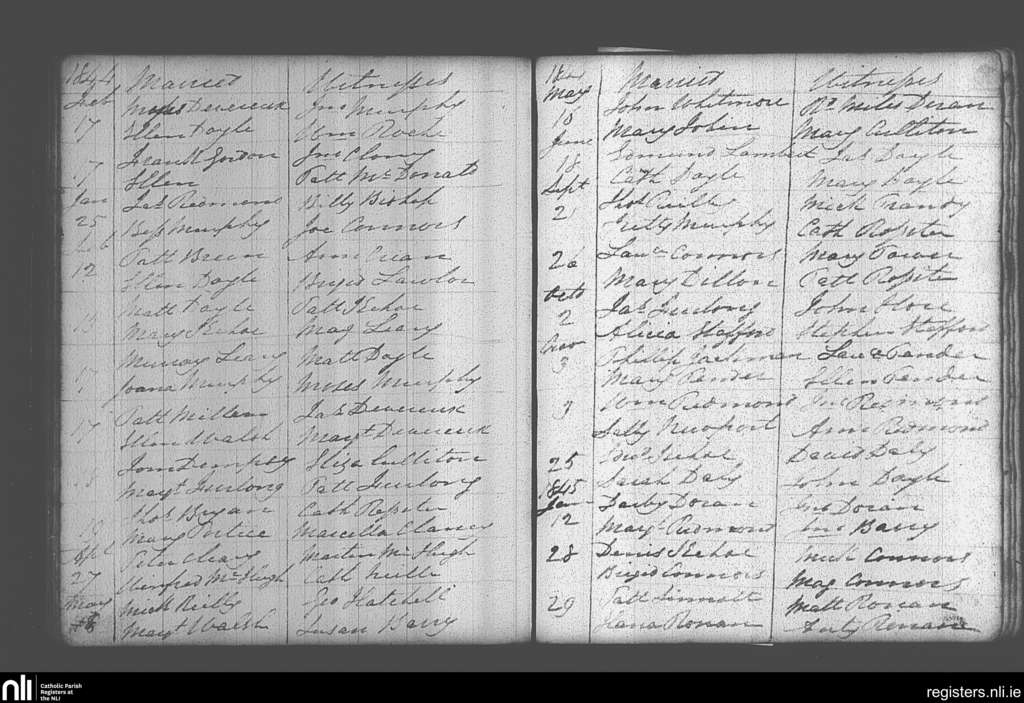 1844 Married Witnesses
Feb Moses Devereux Jno Murphy
17 Ellen Doyle Wm Roche
Frank Jordon Jno Clony
17 Ellen Patt McDonald
Jan Jas Redmond Billy Bishop
25 Bess Murphy Joe Connors
Feb Patt Breen Ann
12 Ellen Doyle Brigid Lawlor
Matt Doyle Patt Kehoe
Mary Kehoe Mag Leary
Leary Matt Doyle
17 Joana Murphy Moses Murphy
Patt Millen Jas Devereux
17 Ellen Walsh Margt Devereux
Tom Dempsey Eliza Culliton
Margt Furlong Patt Furlong
Thos Bryan Cath Rossiter
19 Mary Marcella Clancy
Apl Peter Cleary Martin McHugh
27 Winifred McHugh Cath Neill
May Mick Reilly Geo Hatchell
Margt Walsh Susan Barry
Married Witnesses
May John Whitmore Bt Miles Doran
18 Mary Tobin Mary Culliton
June Edmund Lambert Jas Doyle
18 Cath Doyle Mary Doyle
Sept Mick
2 Kitty Murphy Cath Rossiter
26 Lawce Connors Mary
Mary Dillon Patt Rossiter
Octo Jas Furlong John Hore
2 Alicia Stafford Stephen Stafford
Nov Phillip Jackman Lawce Pender
3 Mary Pender Ellen Pender
3 Wm Redmond Jno Redmond
Sally Newport Ann Redmond
25 Kehoe David Daly
1845 Sarah Daly John Doyle
Jan Darby Doran Geo Doran
12 Margt Redmond Jno Barry
28 Denis Kehoe Mick Connors
Brigid Connors Mag Connors
29 Patt Sinnott Matt Ronan
Ronan Anty Ronan
nli Catholic Parish
Registers at
the NLI
registers.nli.ie